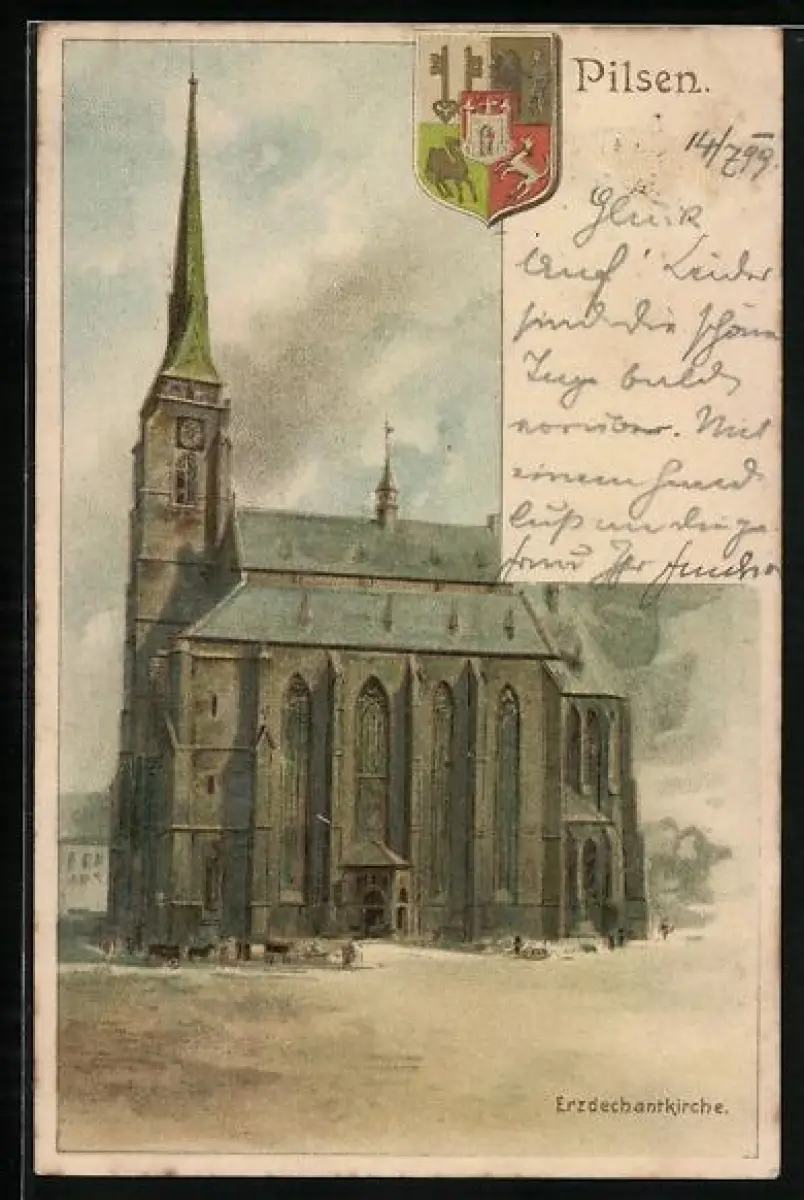 Pilsen.
14/7 99.
Glück
Auf! Leider
sind die schönen
Tage bald
vorüber. Mit
einem Hand
kuß an die ge
Frau Ihr
Erzdechantkirche.